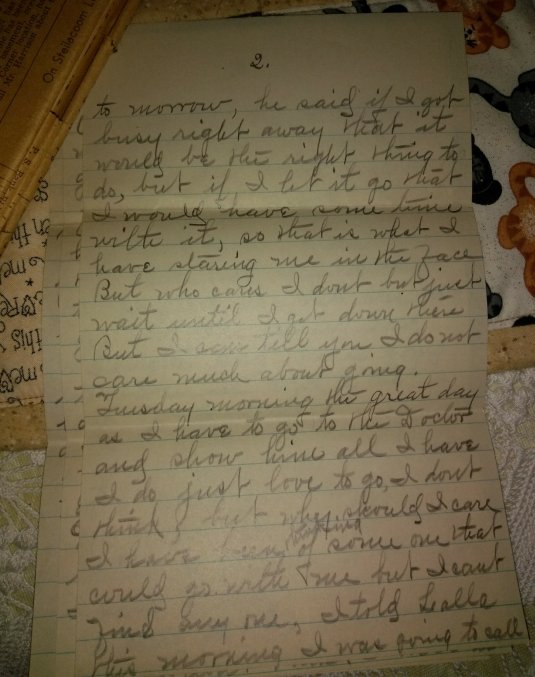 On Steilacoom L
2.
to morrow, he said if I got
busy right away that it
would be the right thing to
do, but if I let it go that
I would have some time
with it, so that is what I
have staring me in the face
But who cares I dont but just
wait until I get down there
But I can tell you I do not
care much about going.
Tuesday morning the great day
as I have to go to the Doctor
and show him all I have
I do just love to go, I dont
think, but why should I care
I have been of some one that
could go with me but I cant
find any one, I told
this morning I was going to call